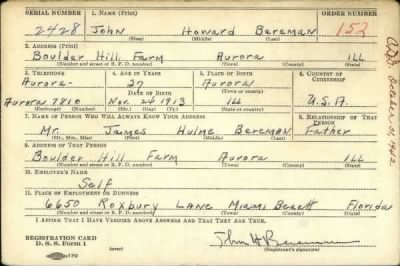 SERIAL NUMBER 1. NAME (Print) ORDER NUMBER
2428 John Howard Bereman 152
2. ADDRESS (Print)
Boulder Hill Farm Aurora Ill
(Number and street or R. F. D. number) (Town) (County) (State)
3. TELEPHONE 4. AGE IN YEARS 5. PLACE OF BIRTH 6. COUNTRY OF CITIZENSHIP
Aurora 27 Aurora
DATE OF BIRTH
Aurora 7810 Nov. 24 1913 Ill U.S.A.
(Exchange) (Number) (Mo.) (Day) (Yr.) (State or county)
7. NAME OF PERSON WHO WILL ALWAYS KNOW YOUR ADDRESS 8. RELATIONSHIP OF THAT PERSON
Mr. James Hulme Bereman Father
(Mr., Mrs., Miss) (First) (Middle) (Last)
9. ADDRESS OF THAT PERSON
Boulder Hill Farm Aurora Ill
(Number and street or R. F. D. number) (Town) (County) (State)
10. EMPLOYER'S NAME
Self
11. PLACE OF EMPLOYMENT OR BUSINESS
6650 Roxbury Lane Miami Beach Florida
(Number and street or R. F. D. number) (Town) (County) (State)
I AFFIRM THAT I HAVE VERIFIED ABOVE ANSWERS AND THAT THEY ARE TRUE.
REGISTRATION CARD
D. S. S. Form 1
John H Bereman
(Registrant's signature)
October 01 1942